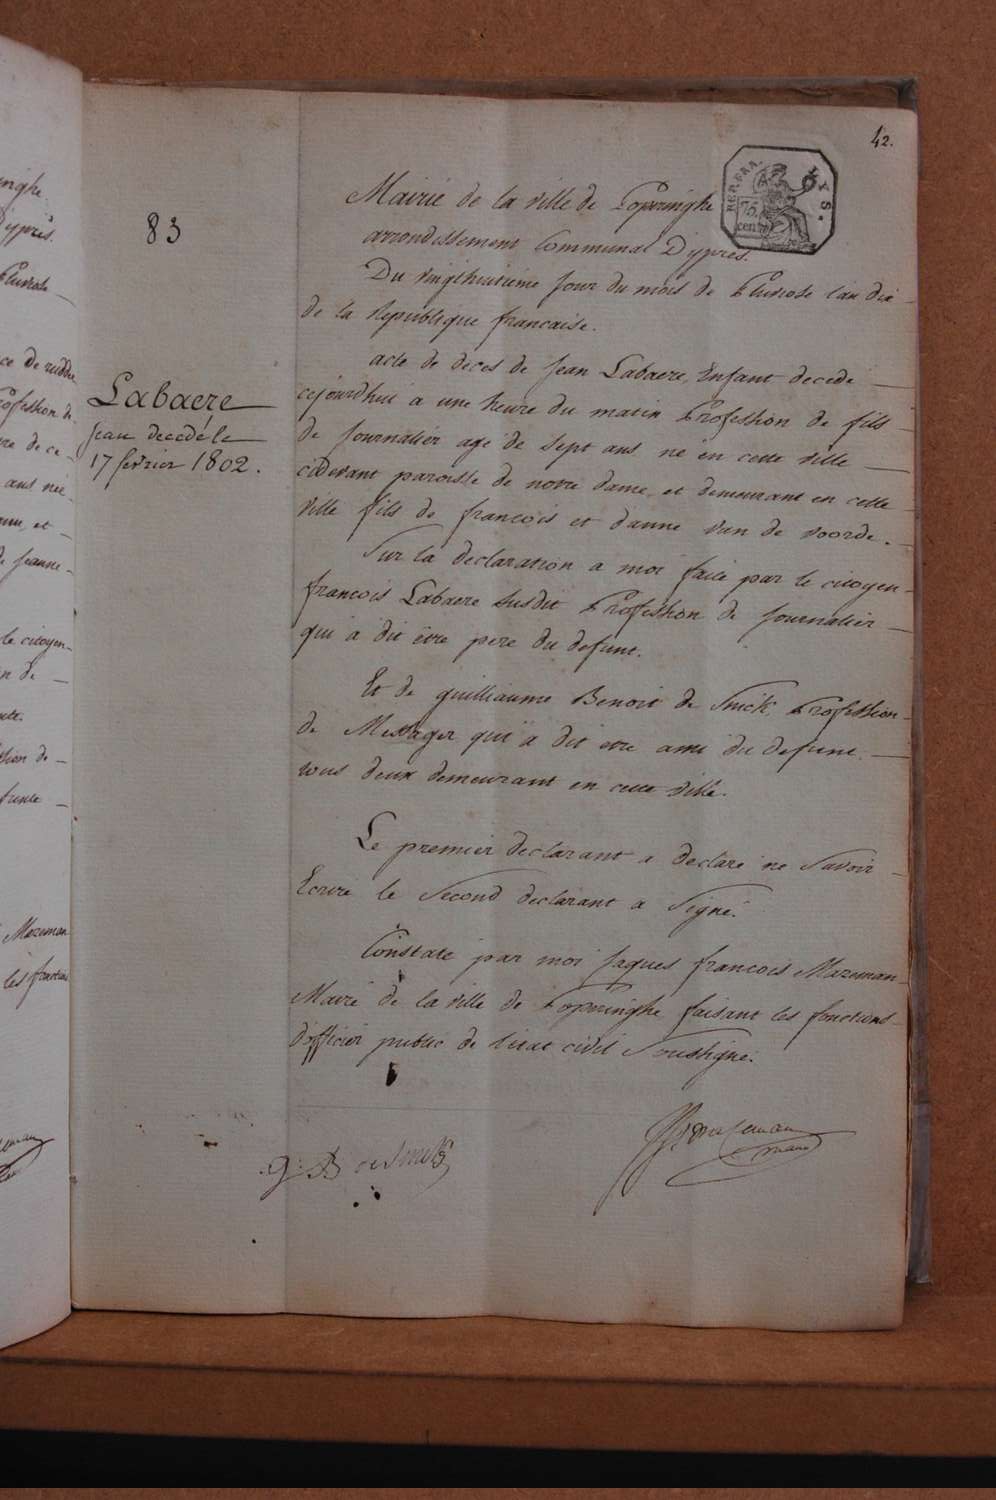 42.
REP. FRA.
LYS.
75
cent
83
Mairie de la ville de Popringhe
arrondissement Communal Dypres.
Du vingthuitieme jour du mois de Pluviose l'an dix
de la Republique francaise.
acte de deces de Jean Labaere, Enfant decedé
cejourdhui a une heure du matin Profession de fils
de journalier agé de sept ans né en cette ville
cidevant paroisse de notre dame, et demeurant en cette
ville fils de francois et d'anne van de voorde.
Sur la declaration a moi faite par le citoyen
francois Labaere susdit Profession de journalier
qui a dit être pere du defunt.
Et de guilliaume Benoit de Smick Profession
de Messager qui a dit etre ami du defunt.
tous deux demeurant en cette ville.
Le premier declarant a declaré ne Savoir
Ecrire le Second declarant a Signé.
Constaté par moi Jaques francois Mazeman
Maire de la ville de Popringhe faisant les fonctions
d'officier public de l'etat civil Soussigné.
Labaere
Jean decedé le
17 fevrier 1802.
g: B de Smick
maire
inghe
Dypres.
Pluviose
ce de rudder
Profession de
re de ce
ans née
et
de Jeanne
le citoyen
n de
sion de
Mazeman
les fonctions